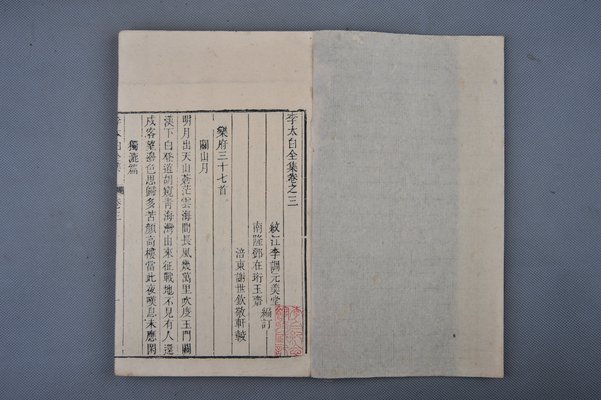 李太白全集卷之三
綾江李調元美堂
南隆鄧在珩玉齋 編訂
涪東謝世欽敬軒較
樂府三十七首
關山月
明月出天山蒼茫雲海間長風幾萬里吹度玉門關
漢下白登道胡窺青海灣由來征戰地不見有人還
戍客望邊色思歸多苦顏高樓當此夜嘆息未應閒
獨漉篇
李太白全集
卷三